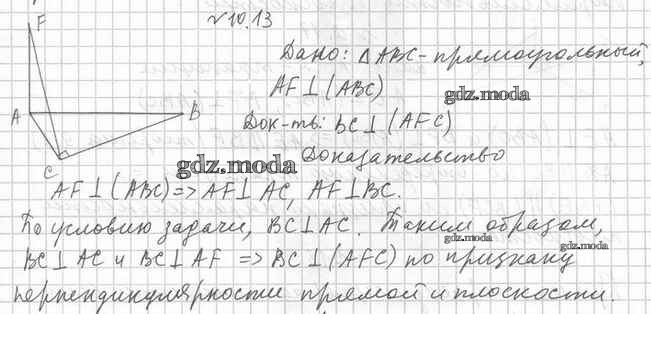 №10.13
F
Дано: △ABC - прямоугольный,
AF⊥(ABC)
gdz.moda
A
B
Док-ть: BC⊥(AFC)
C
Доказательство
gdz.moda
AF⊥(ABC)=>AF⊥AC, AF⊥BC.
По условию задачи, BC⊥AC. Таким образом,
gdz.moda
gdz.moda
BC⊥AC и BC⊥AF => BC⊥(AFC) по признаку
перпендикулярности прямой и плоскости.